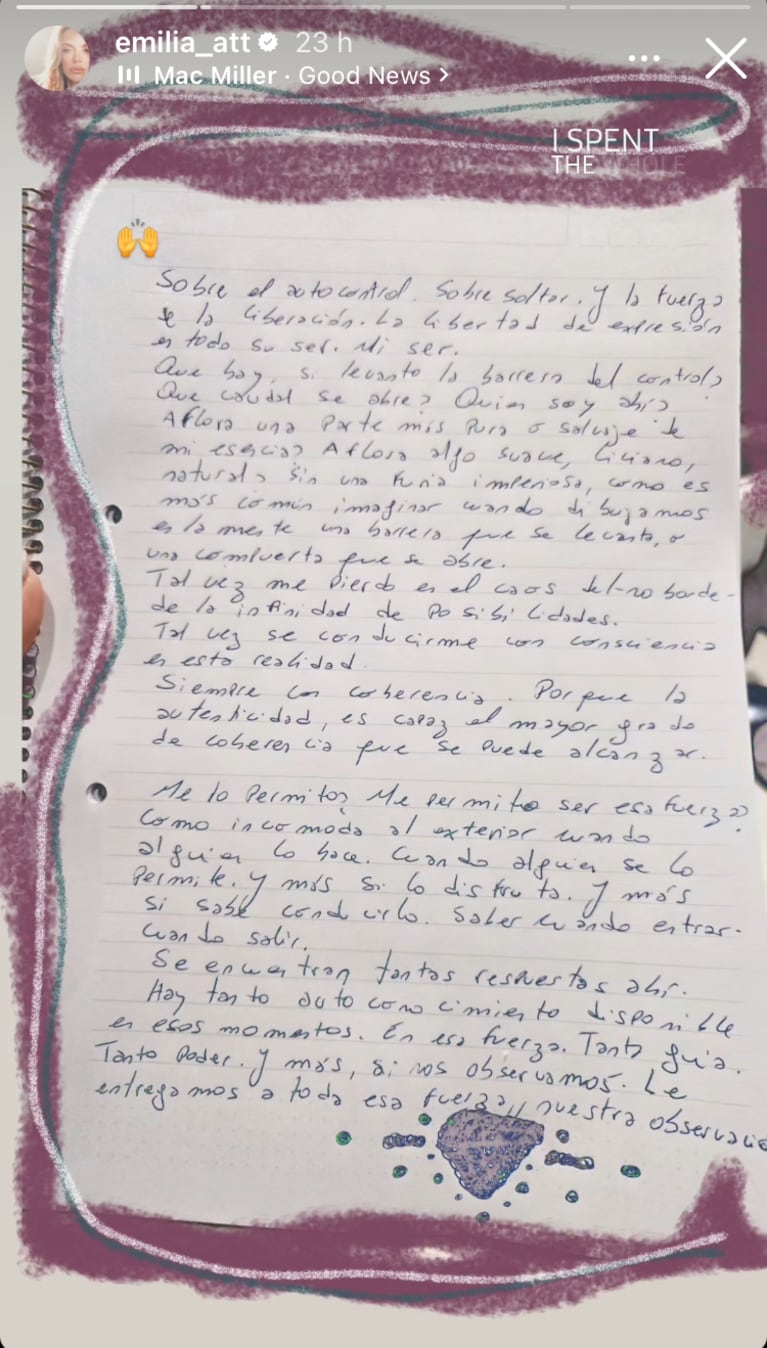 emilia_att 23 h
Mac Miller · Good News >
I SPENT
THE WHOLE
Sobre el autocontrol. Sobre soltar. Y la fuerza
de la liberación. La libertad de expresión
en todo su ser. Mi ser.
Que hay, si levanto la barrera del control?
Que caudal se abre? Quien soy ahí?
Aflora una parte más pura o salvaje de
mi esencia? Aflora algo suave, liviano,
natural? Sin una furia imperiosa, como es
más común imaginar cuando dibujamos
en la mente una barrera que se levanta, o
una compuerta que se abre.
Tal vez me pierdo en el caos del-no borde-
de la infinidad de posibilidades.
Tal vez se conducirme con consciencia
en esta realidad.
Siempre con coherencia. Porque la
autenticidad, es capaz el mayor grado
de coherencia que se puede alcanzar.
Me lo permito? Me permito ser esa fuerza?
Como incomoda al exterior cuando
alguien lo hace. Cuando alguien se lo
permite. Y más si lo disfruta. Y más
si sabe conducirlo. Saber cuando entrar.
Cuando salir.
Se encuentran tantas respuestas ahí.
Hay tanto autoconocimiento disponible
en esos momentos. En esa fuerza. Tanta guía.
Tanto poder. Y más, si nos observamos. Le
entregamos a toda esa fuerza, nuestra